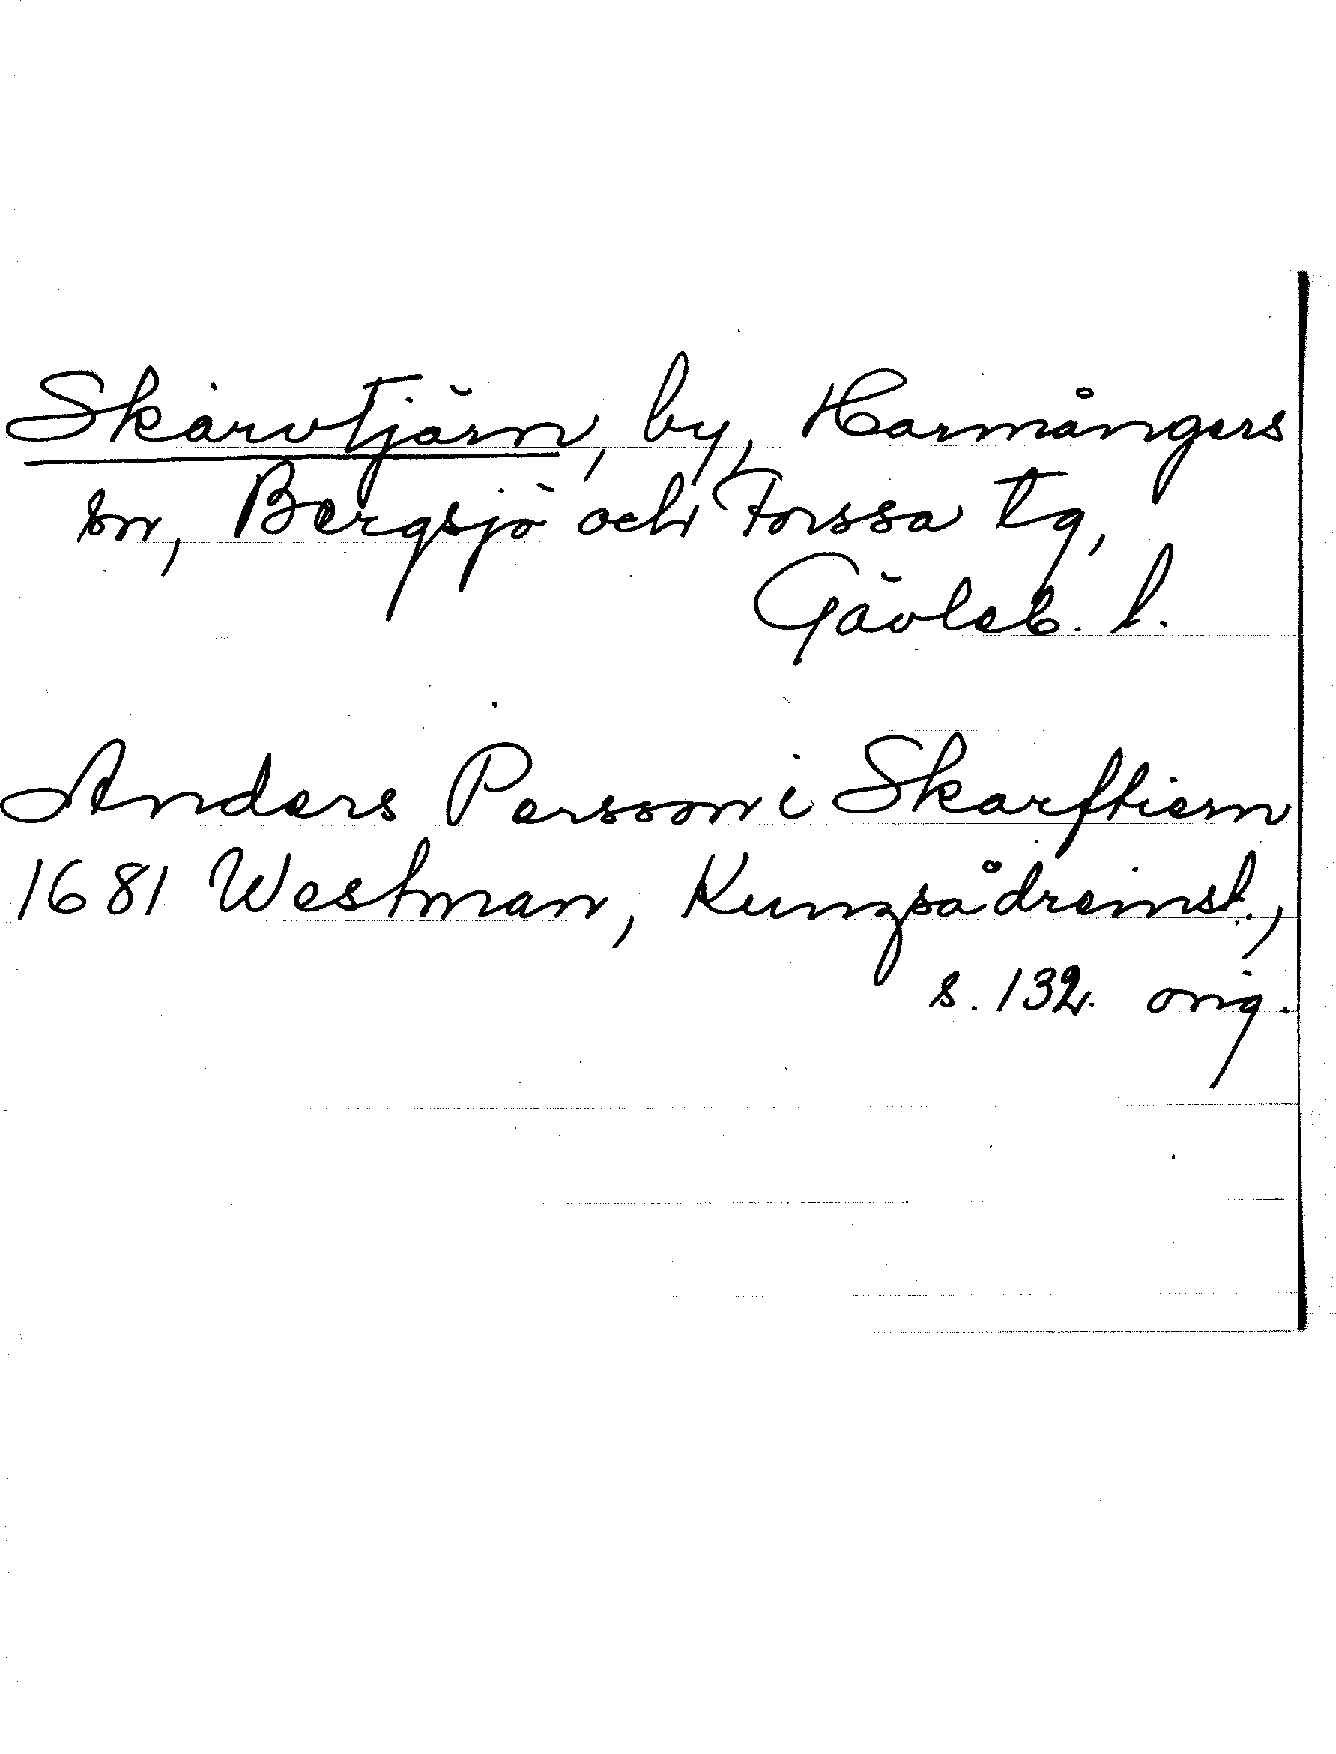 Skarvtjärn, by, Harmångers
sn, Bergsjö och Forssa tg,
Gävleb. l.
Anders Persson i Skarftiern
1681 Westman, Kungsådreinst.,
s. 132. orig.